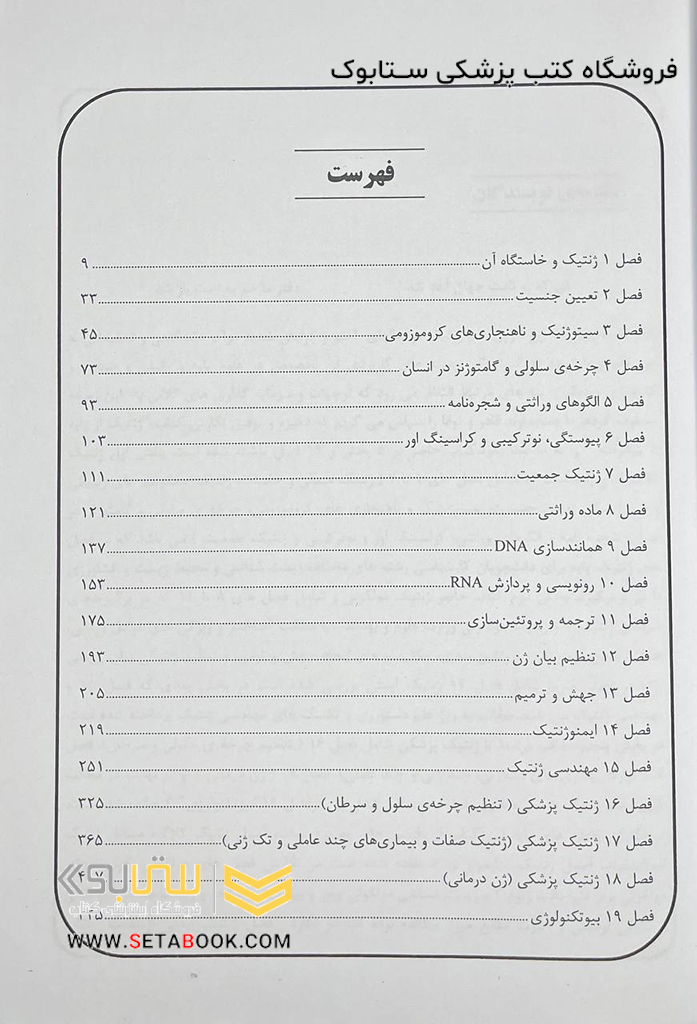 فروشگاه کتب پزشکی ستابوک
فهرست
فصل ۱ ژنتیک و خاستگاه آن ۹
فصل ۲ تعیین جنسیت ۳۳
فصل ۳ سیتوژنیک و ناهنجاری‌های کروموزومی ۴۵
فصل ۴ چرخه‌ی سلولی و گامتوژنز در انسان ۷۳
فصل ۵ الگوهای وراثتی و شجره‌نامه ۹۳
فصل ۶ پیوستگی، نوترکیبی و کراسینگ اور ۱۰۳
فصل ۷ ژنتیک جمعیت ۱۱۱
فصل ۸ ماده وراثتی ۱۲۱
فصل ۹ همانندسازی DNA ۱۳۷
فصل ۱۰ رونویسی و پردازش RNA ۱۵۳
فصل ۱۱ ترجمه و پروتئین‌سازی ۱۷۵
فصل ۱۲ تنظیم بیان ژن ۱۹۳
فصل ۱۳ جهش و ترمیم ۲۰۵
فصل ۱۴ ایمنوژنتیک ۲۱۹
فصل ۱۵ مهندسی ژنتیک ۲۵۱
فصل ۱۶ ژنتیک پزشکی ( تنظیم چرخه‌ی سلول و سرطان) ۳۲۵
فصل ۱۷ ژنتیک پزشکی (ژنتیک صفات و بیماری‌های چند عاملی و تک ژنی) ۳۶۵
فصل ۱۸ ژنتیک پزشکی (ژن درمانی)
فصل ۱۹ بیوتکنولوژی
ستابوک
فروشگاه اینترنتی کتاب
WWW.SETABOOK.COM